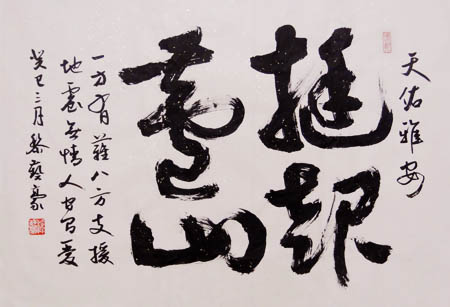 天佑雅安
挺起
蘆山
一方有難八方支援
地震無情人間有愛
癸巳三月黎藝豪